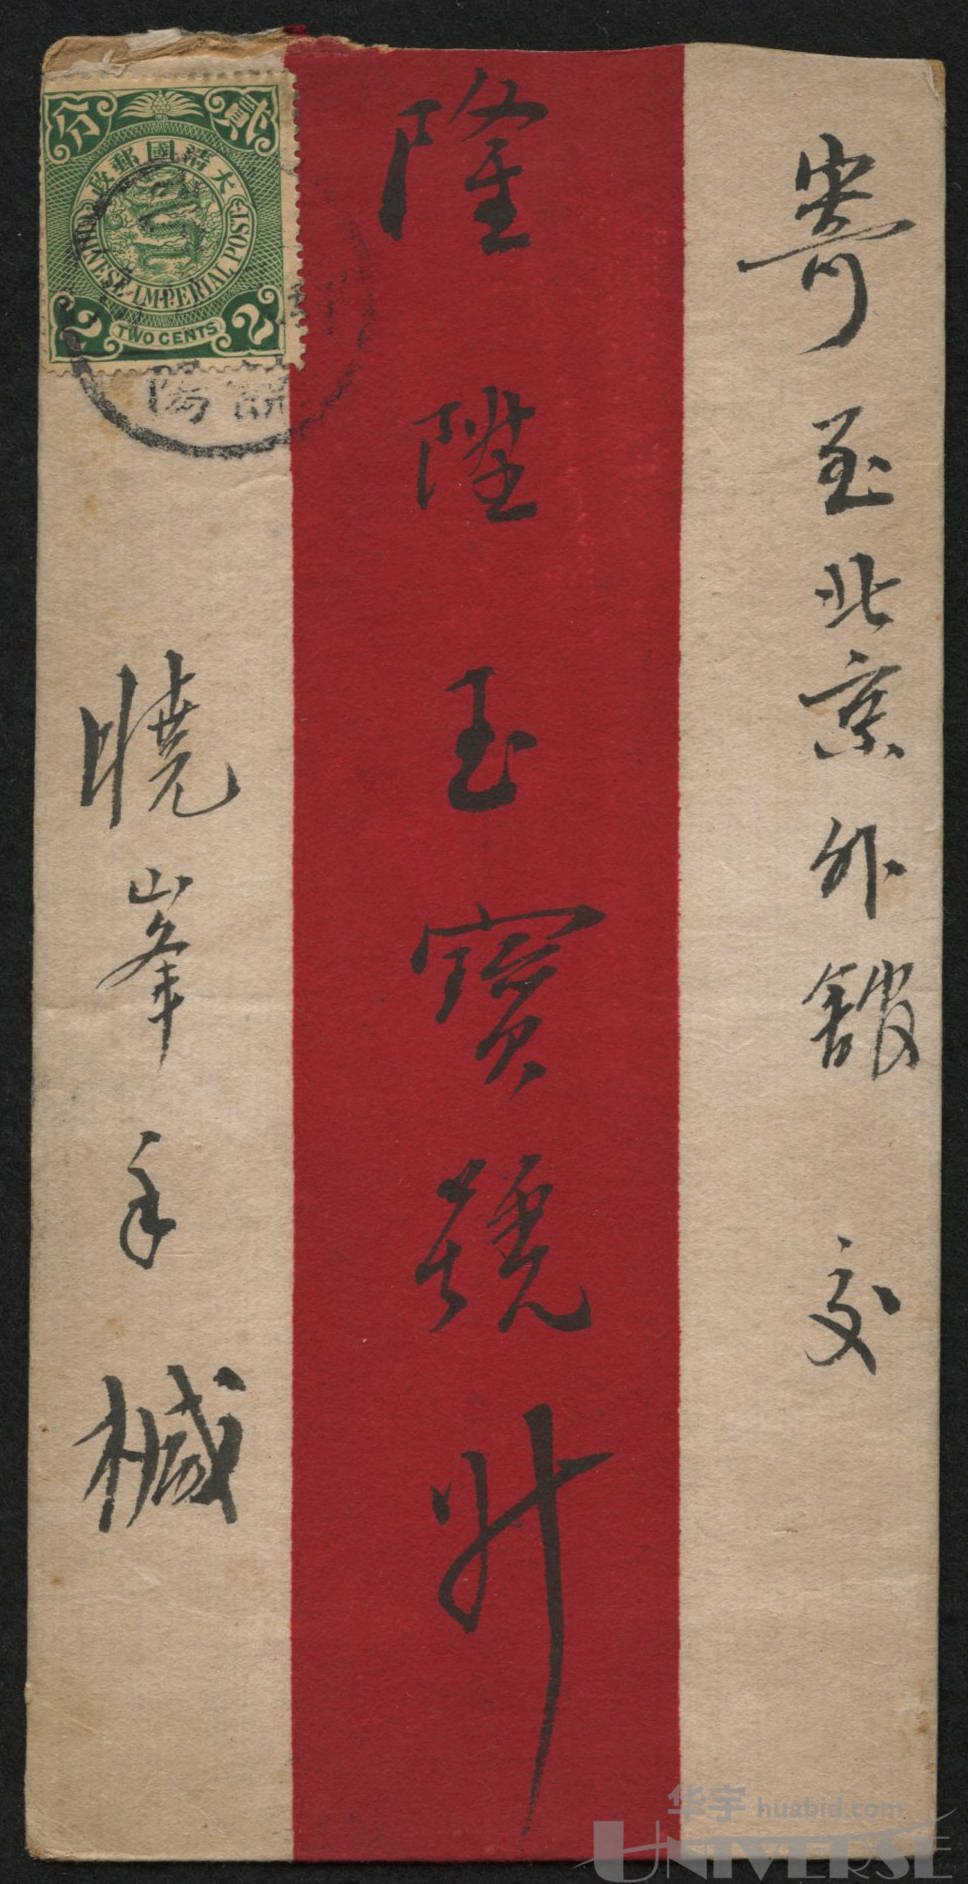 寄至北京外館交
隆陞玉寶號升
曉峯手槭
貳分
大清國郵政
CHINESE IMPERIAL POST
2 TWO CENTS 2
陽
华宇 huabid.com
UNIVERSE